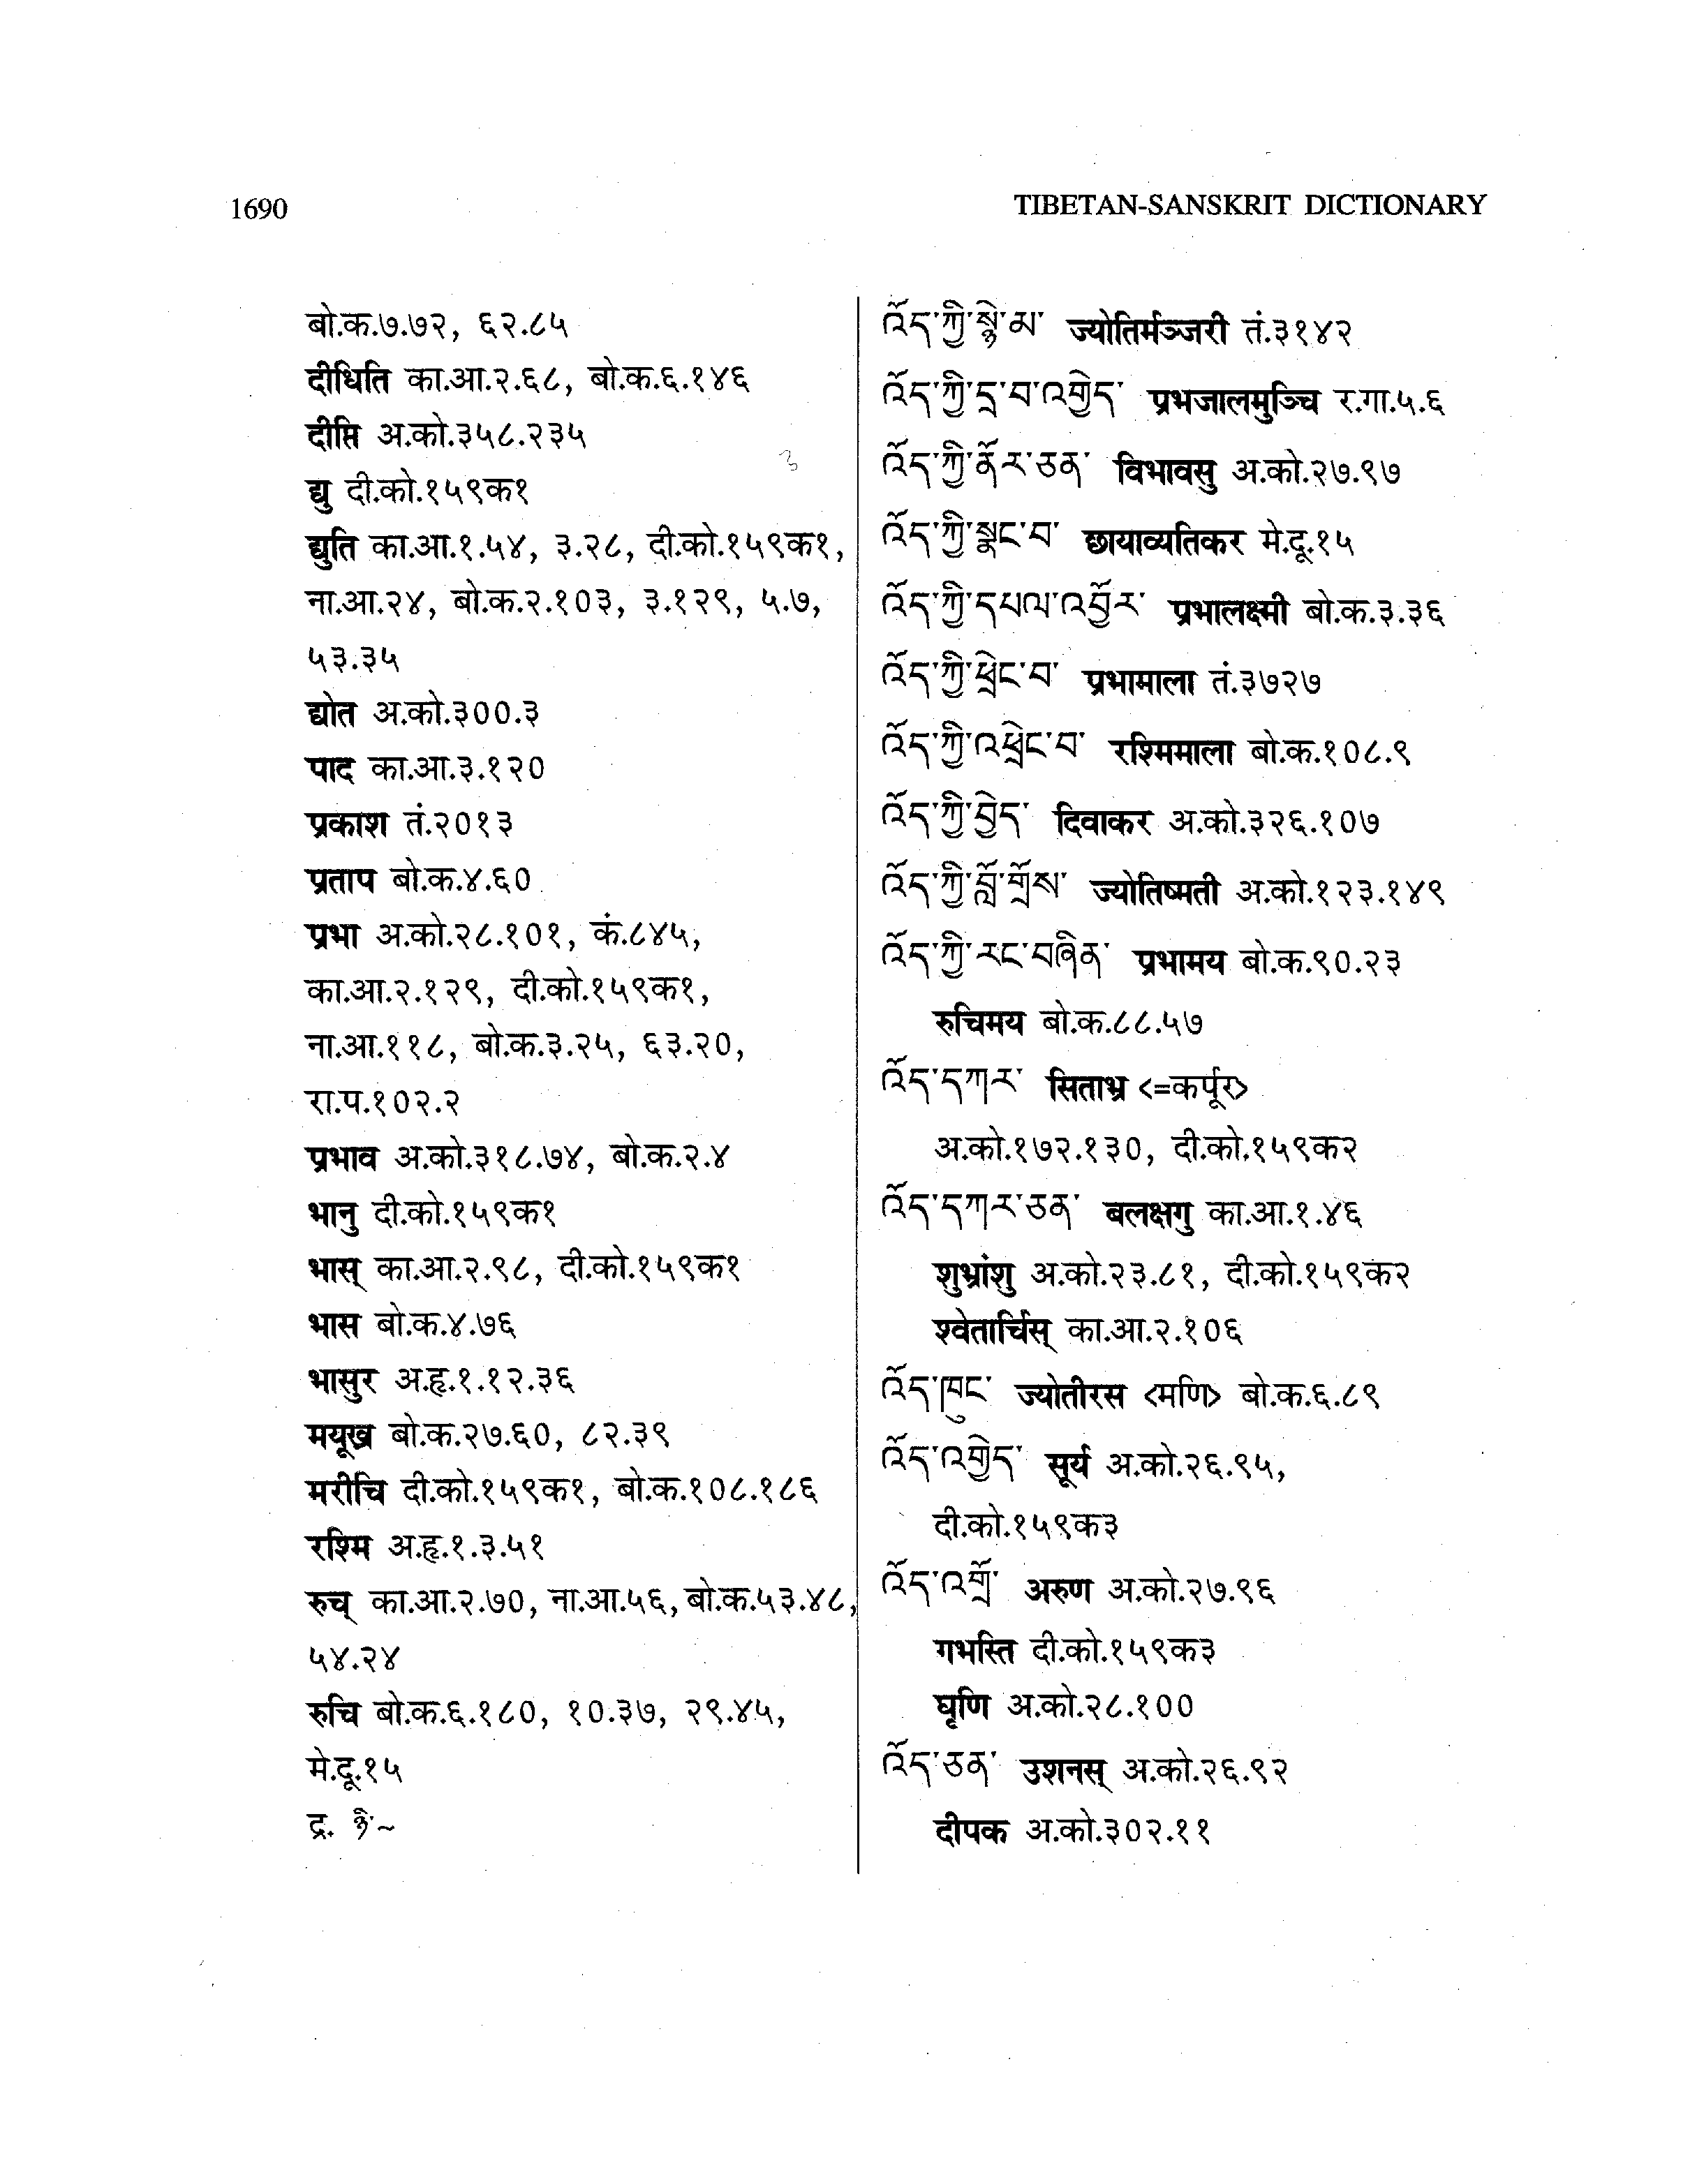 1690
TIBETAN-SANSKRIT DICTIONARY
बो.क.७.७२, ६२.८५
दीधिति का.आ.२.६८, बो.क.६.१४६
दीप्ति अ.को.३५८.२३५
द्यु दी.को.१५९क१
द्युति का.आ.१.५४, ३.२८, दी.को.१५९क१,
ना.आ.२४, बो.क.२.१०३, ३.१२९, ५.७,
५३.३५
द्योत अ.को.३००.३
पाद का.आ.३.१२०
प्रकाश तं.२०१३
प्रताप बो.क.४.६०
प्रभा अ.को.२८.१०१, कं.८४५,
का.आ.२.१२९, दी.को.१५९क१,
ना.आ.११८, बो.क.३.२५, ६३.२०,
रा.प.१०२.२
प्रभाव अ.को.३१८.७४, बो.क.२.४
भानु दी.को.१५९क१
भास् का.आ.२.९८, दी.को.१५९क१
भास बो.क.४.७६
भासुर अ.हृ.१.१२.३६
मयूख बो.क.२७.६०, ८२.३९
मरीचि दी.को.१५९क१, बो.क.१०८.१८६
रश्मि अ.हृ.१.३.५१
रुच् का.आ.२.७०, ना.आ.५६, बो.क.५३.४८,
५४.२४
रुचि बो.क.६.१८०, १०.३७, २९.४५,
मे.दू.१५
द्र. ཉི་~
འོད་ཀྱི་སྙེ་མ་ ज्योतिर्मञ्जरी तं.३१४२
འོད་ཀྱི་དྲ་བ་འགྱེད་ प्रभजालमुञ्चि र.गा.५.६
འོད་ཀྱི་ནོར་ཅན་ विभावसु अ.को.२७.९७
འོད་ཀྱི་སྣང་བ་ छायाव्यतिकर मे.दू.१५
འོད་ཀྱི་དཔལ་འབྱོར་ प्रभालक्ष्मी बो.क.३.३६
འོད་ཀྱི་ཕྲེང་བ་ प्रभामाला तं.३७२७
འོད་ཀྱི་འཕྲེང་བ་ रश्मिमाला बो.क.१०८.९
འོད་ཀྱི་བྱེད་ दिवाकर अ.को.३२६.१०७
འོད་ཀྱི་བློ་གྲོས་ ज्योतिष्मती अ.को.१२३.१४९
འོད་ཀྱི་རང་བཞིན་ प्रभामय बो.क.९०.२३
रुचिमय बो.क.८८.५७
འོད་དཀར་ सिताभ्र <=कर्पूर>
अ.को.१७२.१३०, दी.को.१५९क२
འོད་དཀར་ཅན་ बलक्षगु का.आ.१.४६
शुभ्रांशु अ.को.२३.८१, दी.को.१५९क२
श्वेतार्चिस् का.आ.२.१०६
འོད་ཁུང་ ज्योतीरस <मणि> बो.क.६.८९
འོད་འགྱེད་ सूर्य अ.को.२६.९५,
दी.को.१५९क३
འོད་འགྲོ་ अरुण अ.को.२७.९६
गभस्ति दी.को.१५९क३
घृणि अ.को.२८.१००
འོད་ཅན་ उशनस् अ.को.२६.९२
दीपक अ.को.३०२.११